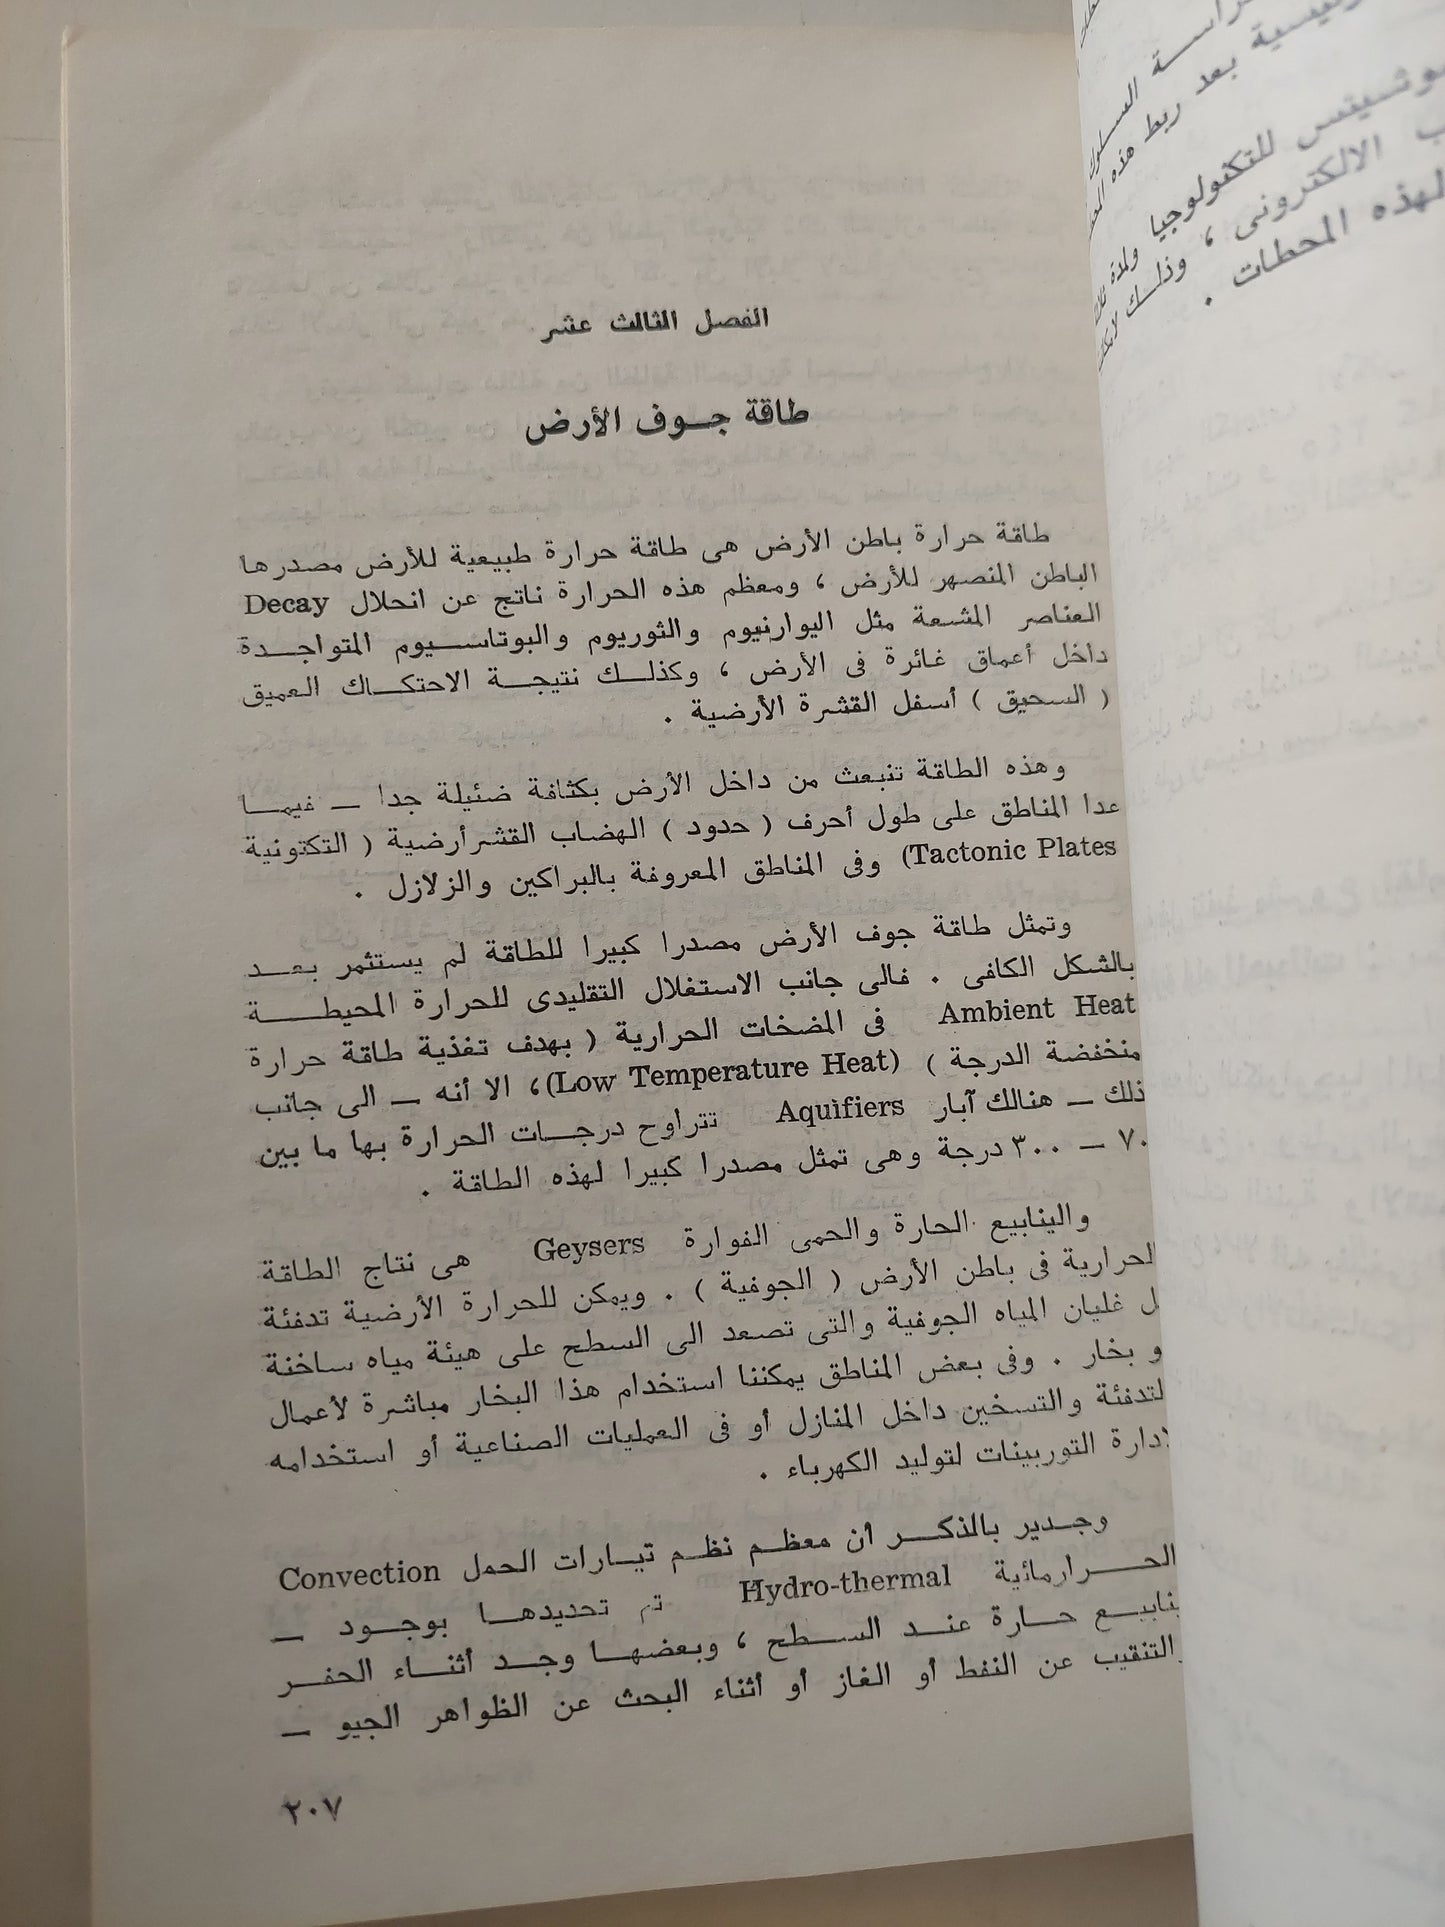 الفصل الثالث عشر
طاقة جـوف الأرض
طاقة حرارة باطن الأرض هى طاقة حرارة طبيعية للأرض مصدرها
الباطن المنصهر للأرض ، ومعظم هذه الحرارة ناتج عن انحلال Decay
العناصر المشعة مثل اليوارنيوم والثوريوم والبوتاسـيوم المتواجـدة
داخل أعماق غائرة فى الأرض ، وكذلـك نتيجـة الاحتكـاك العميق
( السحيق ) أسفل القشرة الأرضية .
وهذه الطاقة تنبعث من داخل الأرض بكثافة ضئيلة جدا ــ فيمـا
عدا المناطق على طول أحرف ( حدود ) الهضاب القشرأرضية ( التكتونية
Tactonic Plates) وفى المناطق المعروفة بالبراكين والزلازل .
وتمثل طاقة جوف الأرض مصدرا كبيرا للطاقة لم يستثمر بعـد
بالشكل الكافى . فالى جانب الاستغلال التقليدى للحرارة المحيطـة
Ambient Heat فى المضخات الحرارية ( بهدف تغذية طاقة حرارة
منخفضة الدرجة ) (Low Temperature Heat)، الا أنه ــ الى جانب
ذلك ــ هنالك آبار Aquifiers تتراوح درجـات الحرارة بها ما بين
٧٠ ــ ٣٠٠ درجة وهى تمثل مصدرا كبيرا لهذه الطاقة .
والينابيع الحارة والحمى الفوارة Geysers هى نتاج الطاقة
الحرارية فى باطن الأرض ( الجوفية ) . ويمكن للحرارة الأرضية تدفئة
غليان المياه الجوفية والتى تصعد الى السطح على هيئة مياه ساخنة
و بخار . وفى بعض المناطق يمكننا استخدام هذا البخار مباشرة لأعمال
لتدفئة والتسخين داخل المنازل أو فى العمليات الصناعية أو استخدامه
لادارة التوربينات لتوليد الكهرباء .
وجـدير بالذكـر أن معظـم نظـم تيـارات الحمل Convection
الحـرارمائية Hydro-thermal تم تحديدهـا بوجـود ــ
ينابيـع حـارة عنـد السـطح ، وبعضهـا وجـد أثنـاء الحفـر
والتنقيب عن النفط أو الغاز أو أثناء البحث عن الظواهر الجيو ــ
٢٠٧
راسـة السـلوك
ئيسية بعد ربط هذه
وشيتس للتكنولوجيا ولمدة
ب الالكترونى ، وذلـك
لهذه المحطات .